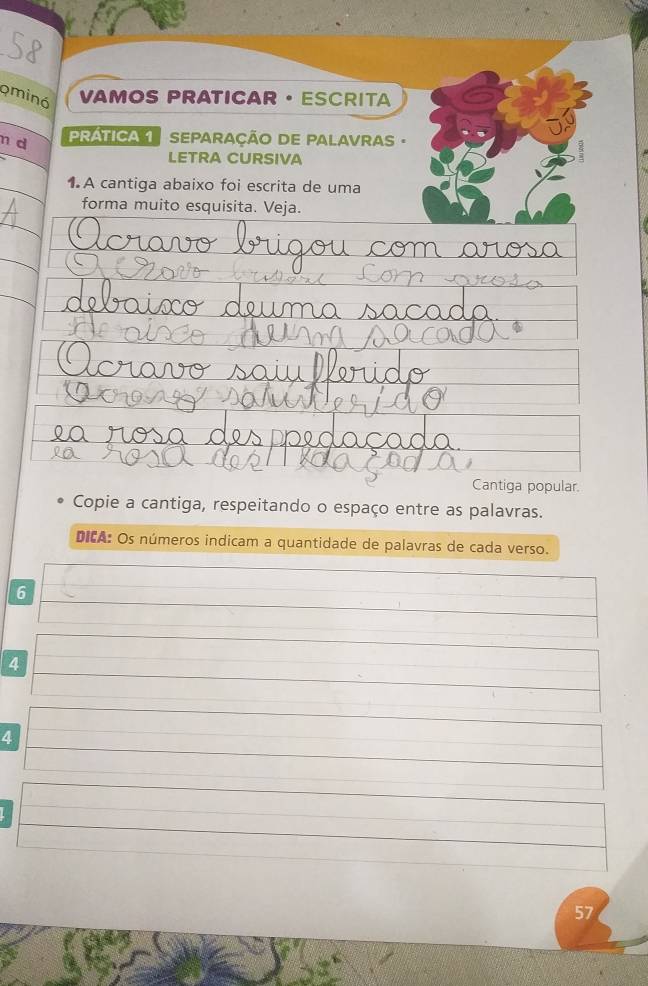 58
ominó
VAMOS PRATICAR • ESCRITA
m d
PRÁTICA 1 SEPARAÇÃO DE PALAVRAS •
LETRA CURSIVA
1. A cantiga abaixo foi escrita de uma
forma muito esquisita. Veja.
A
Ocravo brigou com arosa
Ocravo brigou com arosa
debaixo deuma sacada.
debaixo deuma sacada.
Ocravo saiufferido
Ocravo saiufferido
ea rosa des ppedaçada.
ea rosa des ppedaçada.
Cantiga popular.
• Copie a cantiga, respeitando o espaço entre as palavras.
DICA: Os números indicam a quantidade de palavras de cada verso.
6
4
4
57